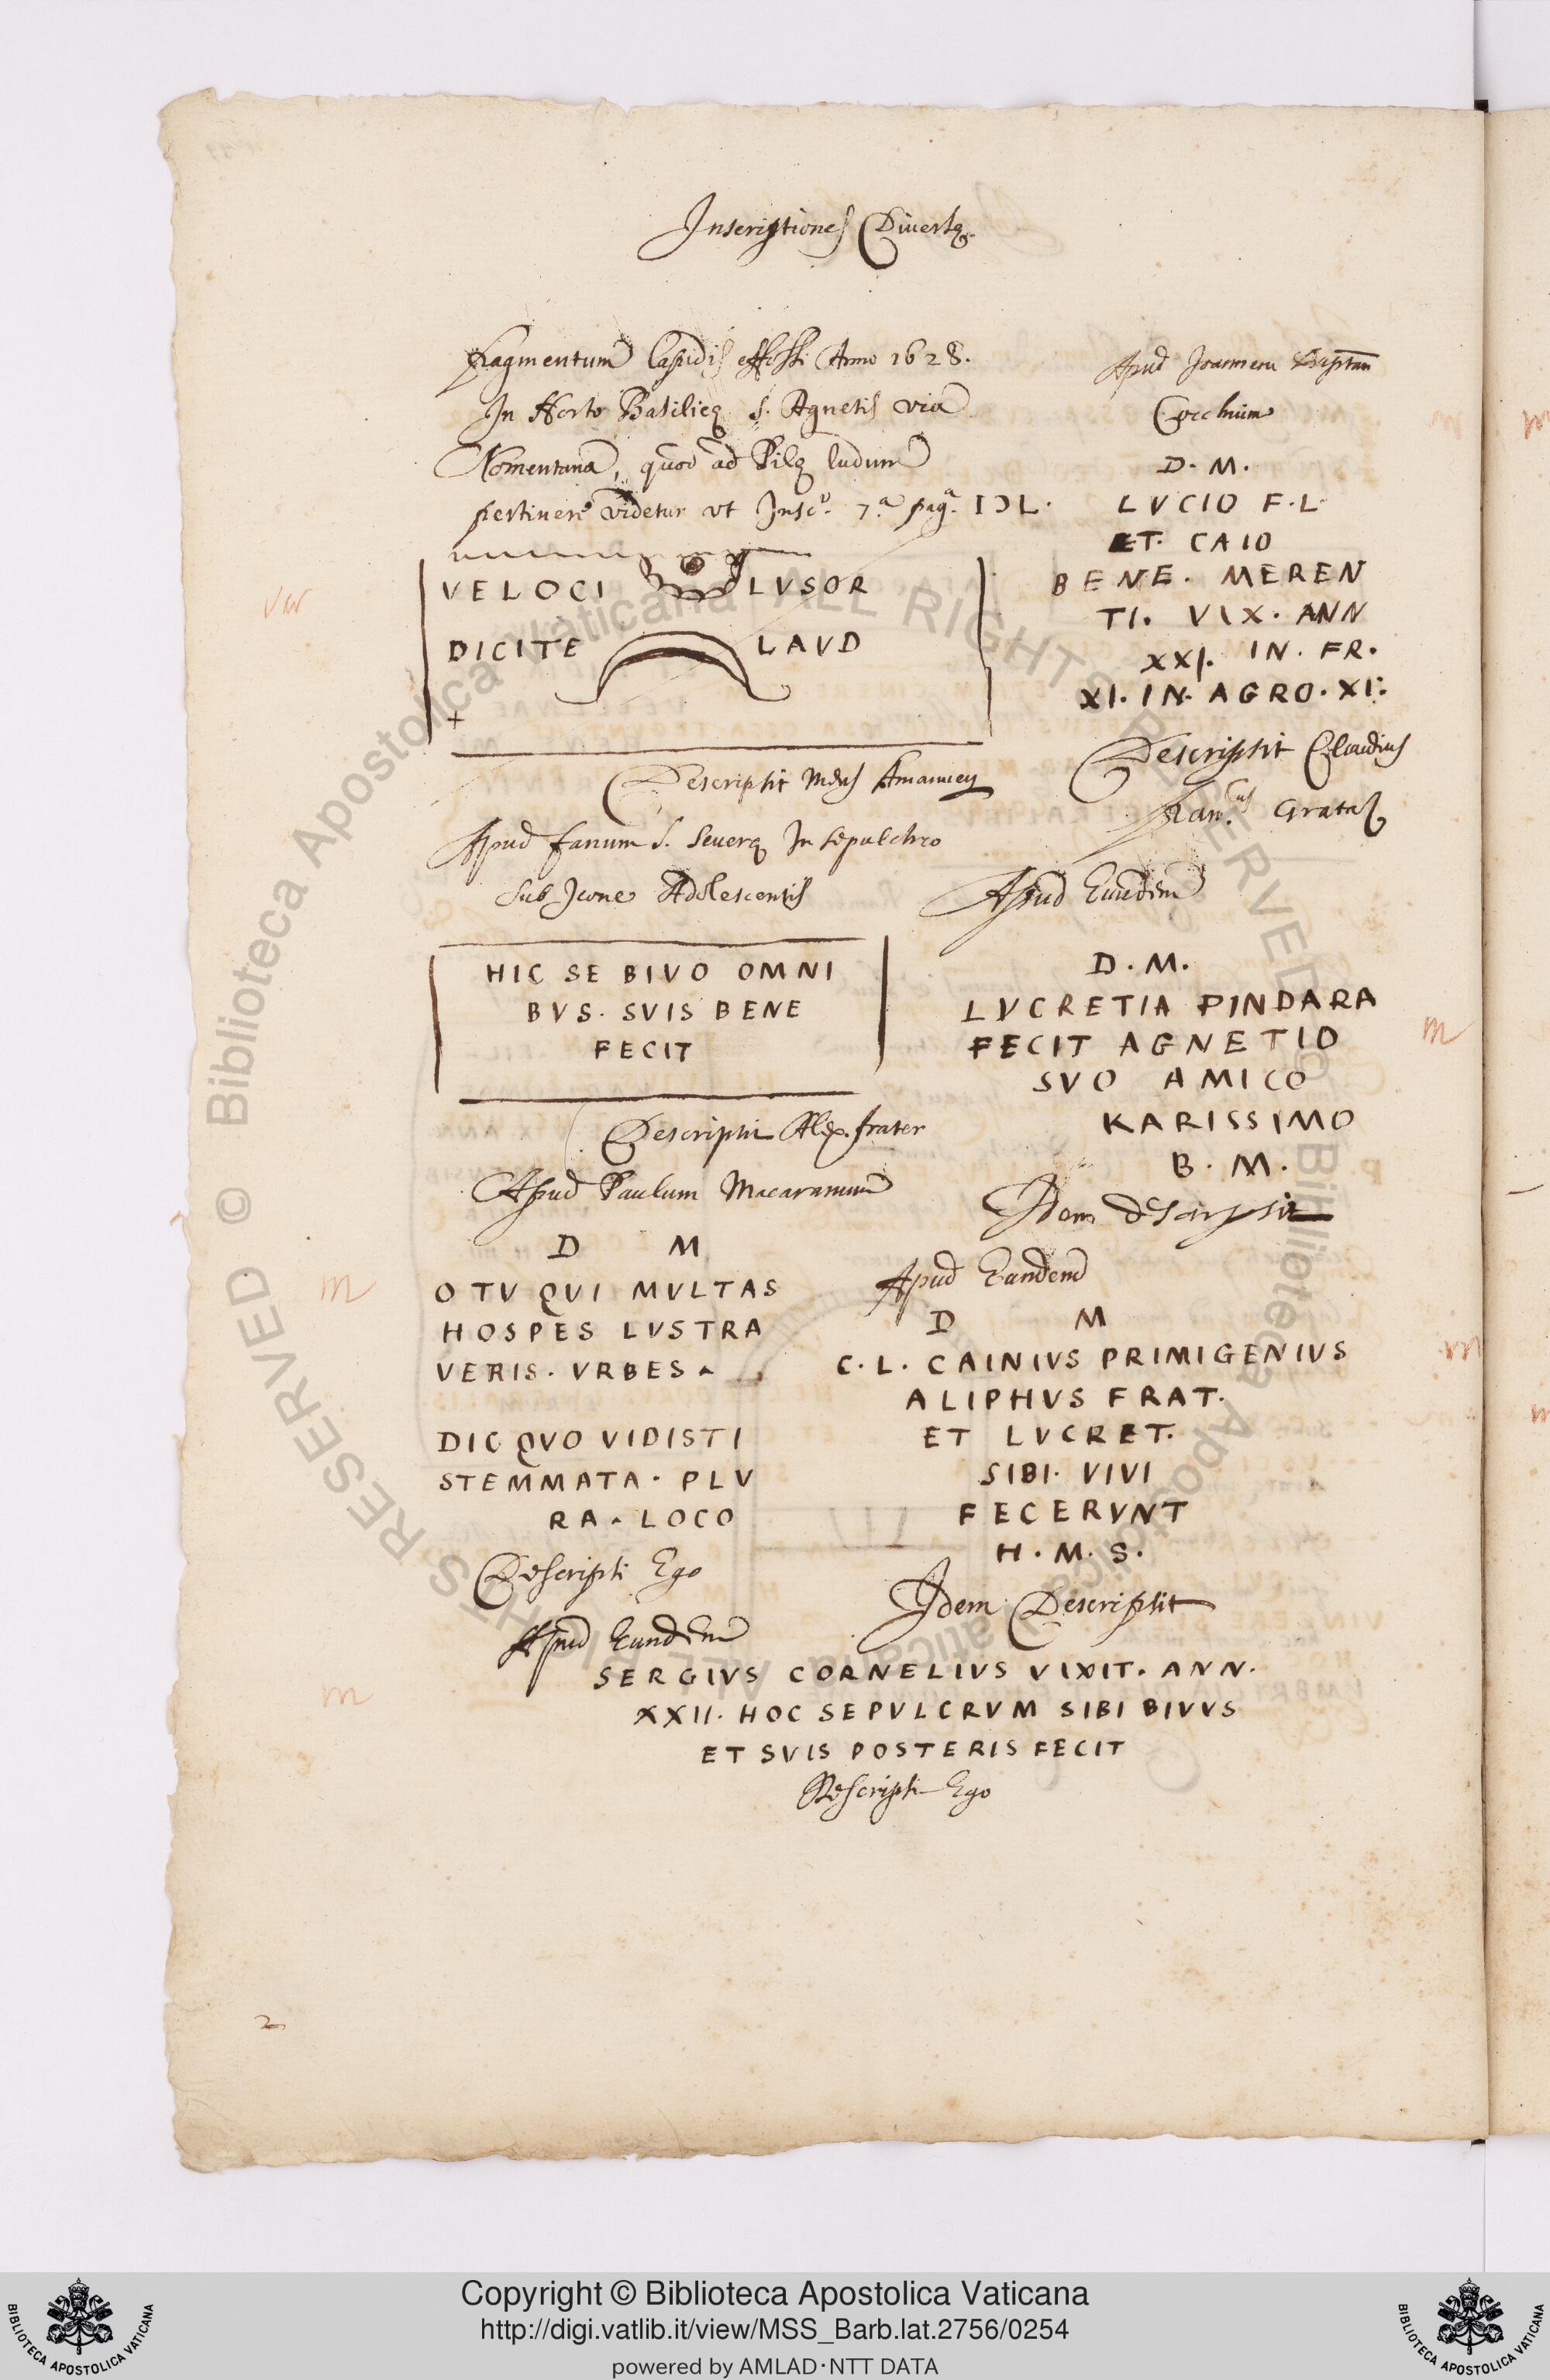 Inscriptiones Diversę
fragmentum lapidis effossi Anno 1628.
In Horto Basilicę S. Agnetis via
Nomentana, quod ad Pilę ludum
pertinere videtur ut Insc. 7.a pag.a IƆL.
VELOCI LVSOR
DICITE LAVD
Descripsit Amanuen
Apud fanum S. Severę In sepulchro
sub Icone Adolescentis
HIC SE BIVO OMNI
BVS. SVIS BENE
FECIT
Descripsit Alex. frater
Apud Paulum Macaranum
D M
O TV QVI MVLTAS
HOSPES LVSTRA
VERIS. VRBES
DIC QVO VIDISTI
STEMMATA. PLV
RA. LOCO
Descripsi Ego
Apud Eundem
SERGIVS CORNELIVS VIXIT. ANN.
XXII. HOC SEPVLCRVM SIBI BIVVS
ET SVIS POSTERIS FECIT
Descripsi Ego
Apud Joannem Baptam
Cocchium
D. M.
LVCIO F.L.
ET. CAIO
BENE. MEREN
TI. VIX. ANN
XXI. IN. FR.
XI. IN. AGRO. XI.
Descripsit Claudius
Gratas
Apud Eundem
D. M.
LVCRETIA PINDARA
FECIT AGNETIO
SVO AMICO
KARISSIMO
B. M.
Idem descripsit
Apud Eundem
D M
C. L. CAINIVS PRIMIGENIVS
ALIPHVS FRAT.
ET LVCRET.
SIBI. VIVI
FECERVNT
H. M. S.
Idem Descripsit
2
© Biblioteca Apostolica Vaticana ALL RIGHTS RESERVED
Copyright © Biblioteca Apostolica Vaticana
http://digi.vatlib.it/view/MSS_Barb.lat.2756/0254
powered by AMLAD·NTT DATA
BIBLIOTECA APOSTOLICA VATICANA
BIBLIOTECA APOSTOLICA VATICANA